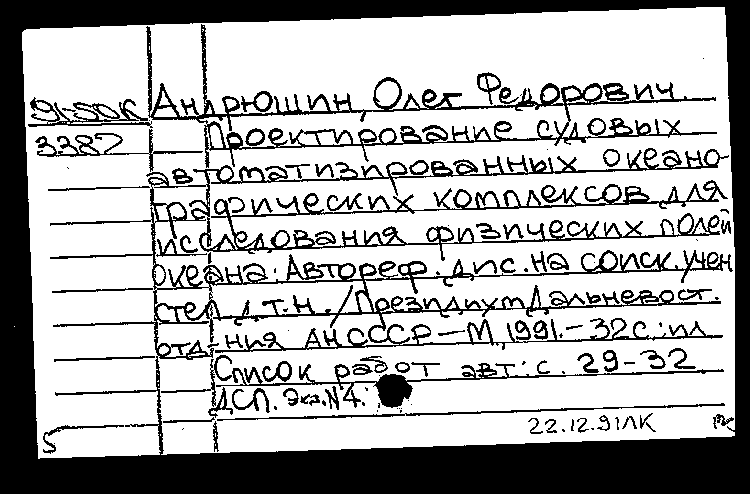 91-50К Андрюшин, Олег Федорович.
3387 Проектирование судовых
автоматизированных океано-
графических комплексов для
исследования физических полей
океана: Автореф. дис. на соиск. учен
степ д.т.н. / Дальневост.
отд-ния АН СССР – М, 1991. – 32с.: ил
Список работ авт: с. 29-32
ДСП. Экз. N4.
22.12.91ЛК
5